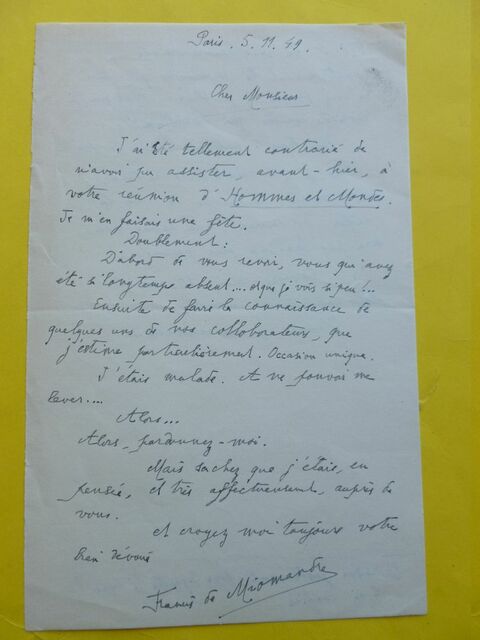 Paris. 5.11.49.
Cher Monsieur
J'ai été tellement contrarié de
n'avoir pu assister, avant-hier, à
votre réunion d'Hommes et Mondes.
Je m'en faisais une fête.
Doublement:
D'abord de vous revoir, vous qui avez
été si longtemps absent... et que je vois si peu!..
Ensuite de faire la connaissance de
quelques uns de vos collaborateurs, que
j'estime particulièrement. Occasion unique.
J'étais malade. A ne pouvoir me
lever....
Alors...
Alors, pardonnez-moi.
Mais sachez que j'étais, en
pensée, et très affectueusement, auprès de
vous.
Et croyez moi toujours votre
bien dévoué
Francis de Miomandre